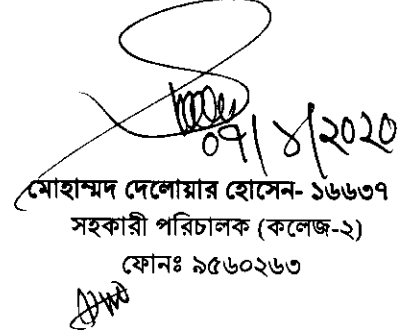 মোহাম্মদ দেলোয়ার হোসেন- ১৬৬৩৭
সহকারী পরিচালক (কলেজ-২)
ফোনঃ ৯৫৬০২৬৩